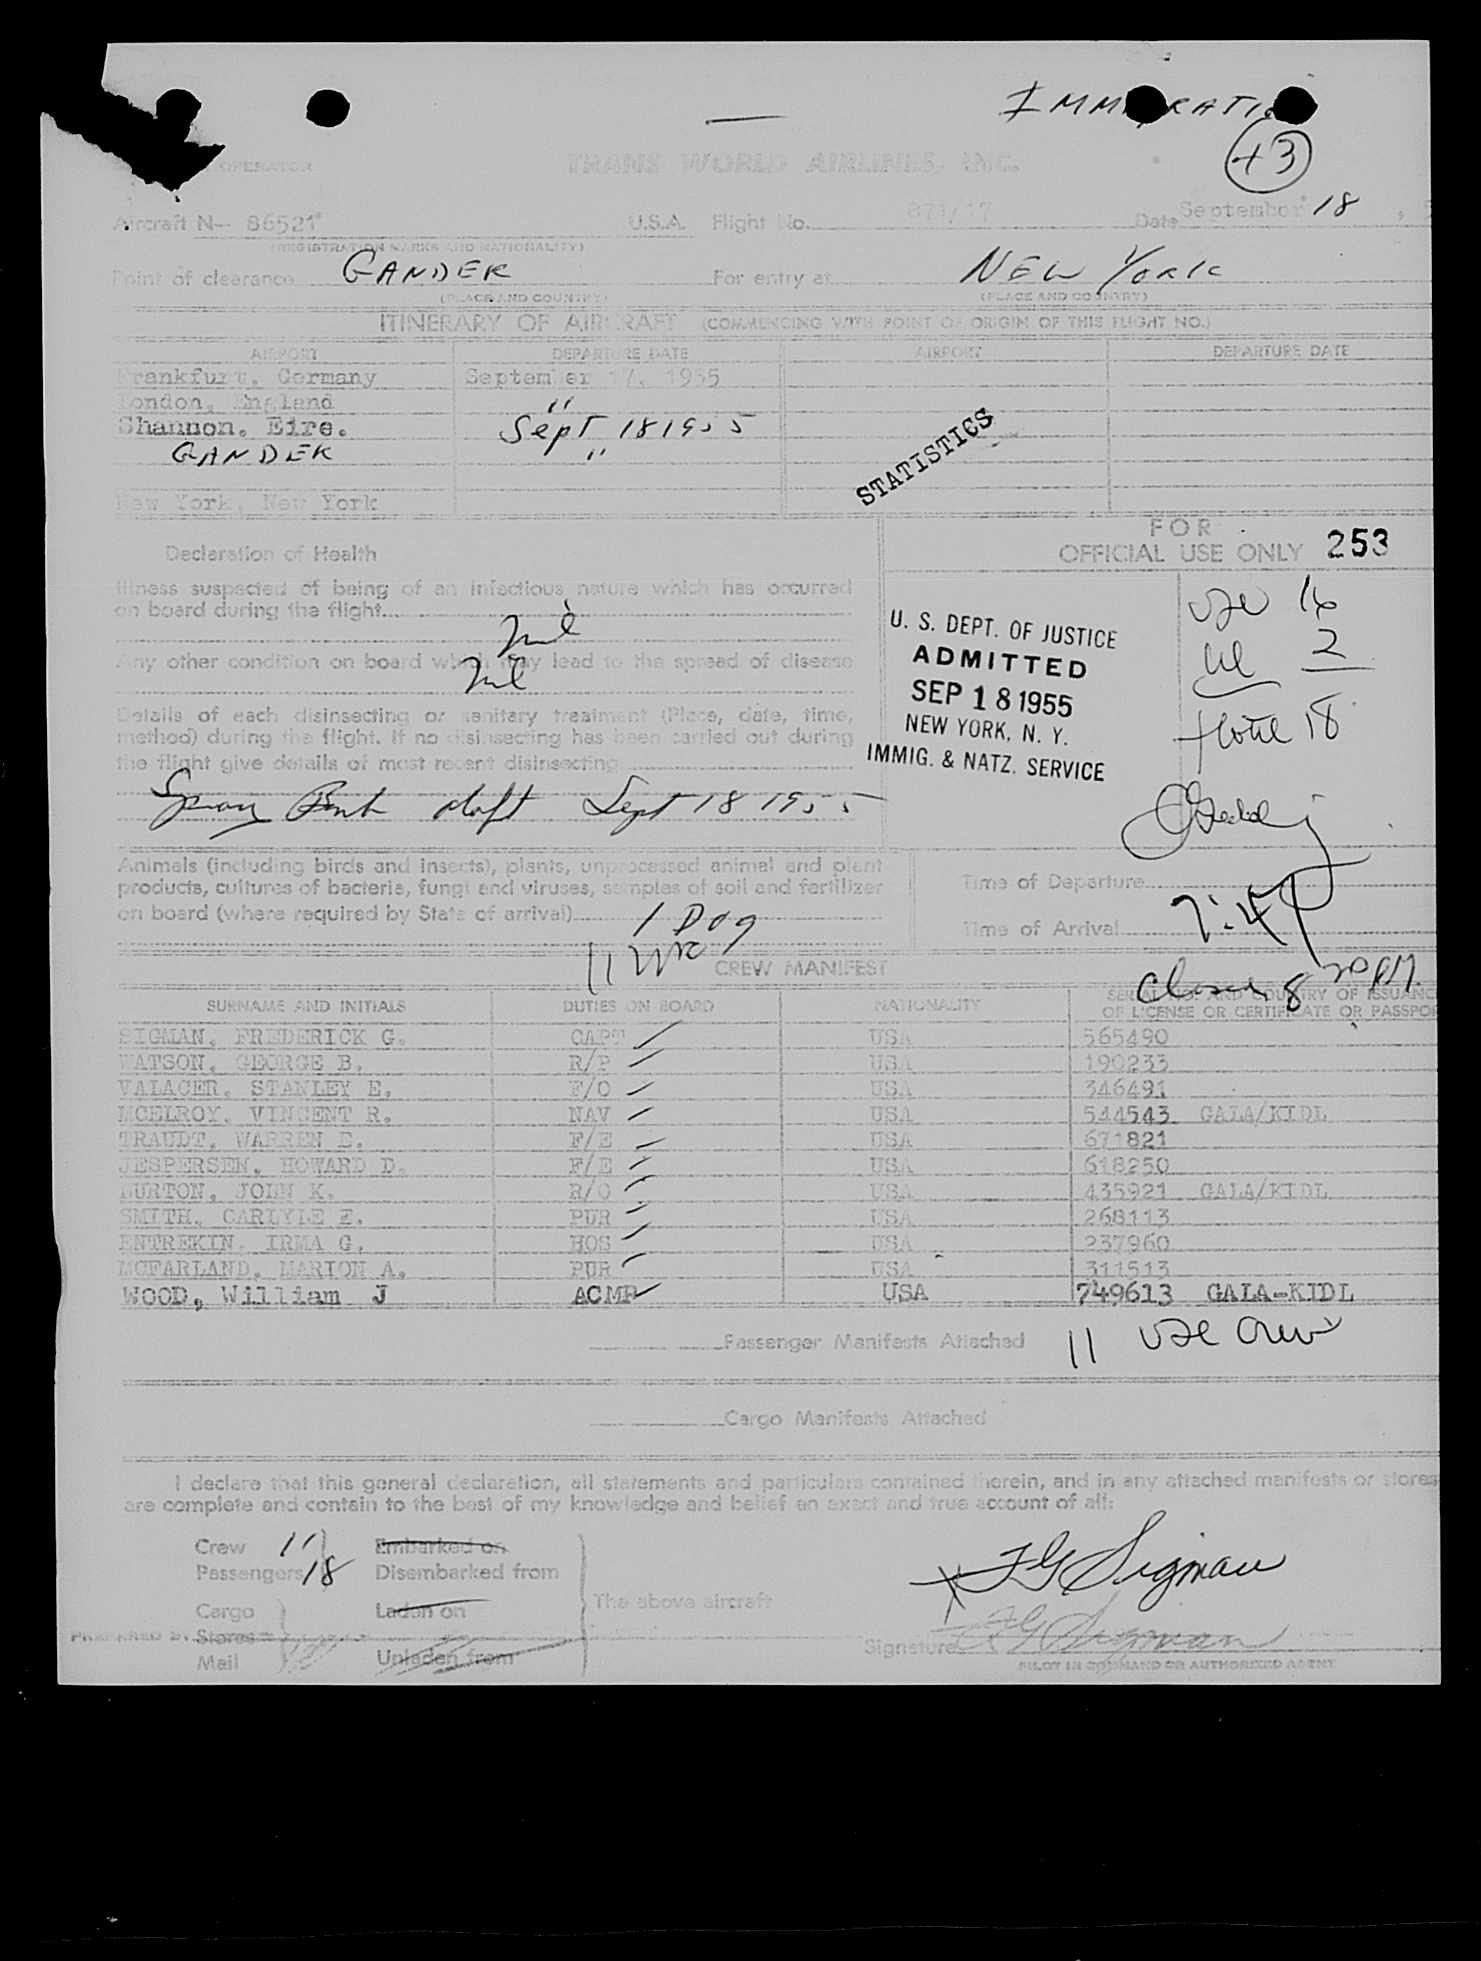 IMMIGRATION
+3
OPERATOR
TRANS WORLD AIRLINES, INC.
Aircraft N— 86521 U.S.A. Flight No. 871/17 Date September 18, 5
(REGISTRATION MARKS AND NATIONALITY)
Point of clearance GANDER For entry at NEW YORK
(PLACE AND COUNTRY) (PLACE AND COUNTRY)
ITINERARY OF AIRCRAFT (COMMENCING WITH POINT OF ORIGIN OF THIS FLIGHT NO.)
AIRPORT DEPARTURE DATE AIRPORT DEPARTURE DATE
Frankfurt, Germany September 17, 1955
London, England "
Shannon. Eire. Sept 18 1955
GANDER "
New York, New York
STATISTICS
FOR
OFFICIAL USE ONLY 253
Declaration of Health
Illness suspected of being of an infectious nature which has occurred
on board during the flight
Nil
Any other condition on board which may lead to the spread of disease
Nil
Details of each disinsecting or sanitary treatment (Place, date, time,
method) during the flight. If no disinsecting has been carried out during
the flight give details of most recent disinsecting
Spray Sept 18 1955
U. S. DEPT. OF JUSTICE
ADMITTED
SEP 18 1955
NEW YORK, N. Y.
IMMIG. & NATZ. SERVICE
USC 16
2
Total 18
Animals (including birds and insects), plants, unprocessed animal and plant
products, cultures of bacteria, fungi and viruses, samples of soil and fertilizer
on board (where required by State of arrival) 1 Dog
11
Time of Departure
Time of Arrival
CREW MANIFEST
SURNAME AND INITIALS DUTIES ON BOARD NATIONALITY SERIAL NO. AND COUNTRY OF ISSUANC
OF LICENSE OR CERTIFICATE OR PASSPO
SIGMAN, FREDERICK G. CAPT USA 565490
WATSON, GEORGE B. R/P USA 190233
VALACER, STANLEY E. F/O USA 346491
MCELROY, VINCENT R. NAV USA 544543 GALA/KIDL
TRAUDT, WARREN E. F/E USA 671821
JESPERSEN, HOWARD D. F/E USA 618250
BURTON, JOHN K. R/O USA 435921 GALA/KIDL
SMITH, CARLYLE E. PUR USA 268113
ENTREKIN, IRMA G. HOS USA 237960
MCFARLAND, MARION A. PUR USA 311513
WOOD, William J ACMR USA 749613 GALA-KIDL
Passenger Manifests Attached 11 USC crew
Cargo Manifests Attached
I declare that this general declaration, all statements and particulars contained therein, and in any attached manifests or stores
are complete and contain to the best of my knowledge and belief an exact and true account of all:
Crew 11 Embarked on
Passengers 18 Disembarked from
The above aircraft
Cargo Laden on
PREPARED BY Stores
Mail Unladen from
F G Sigman
Signature F G Sigman
PILOT IN COMMAND OR AUTHORIZED AGENT